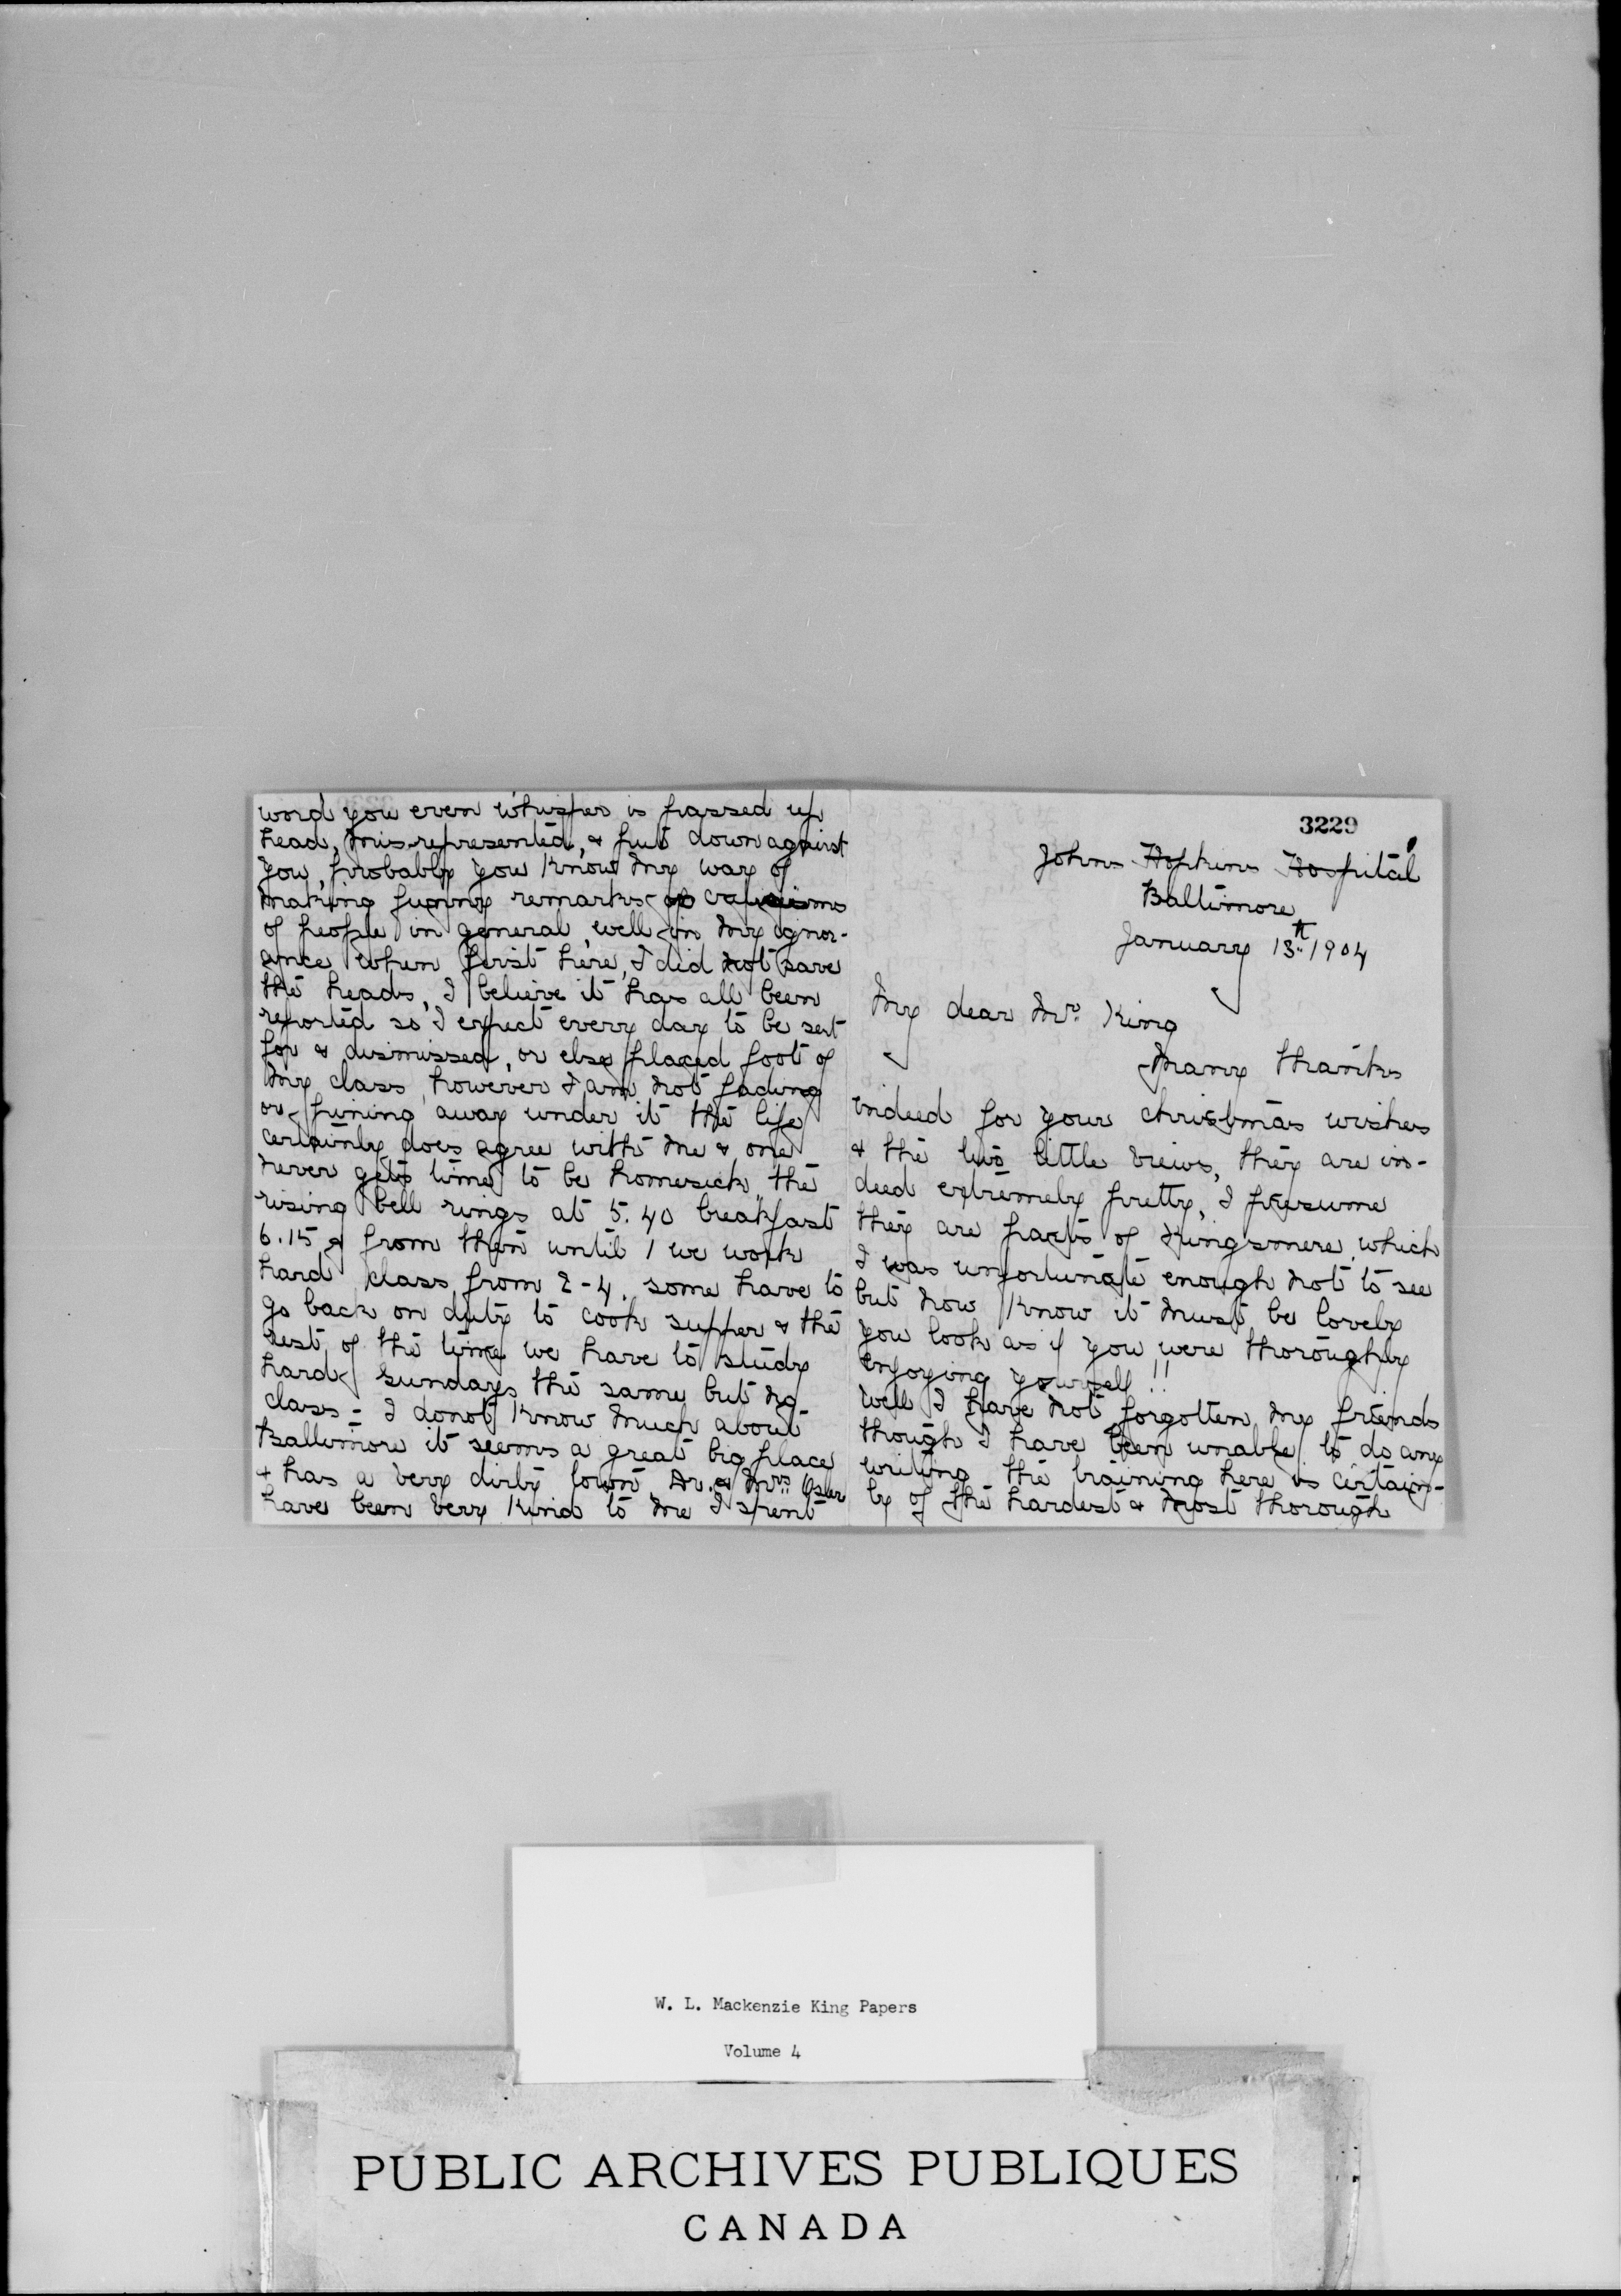 3229
Johns Hopkins Hospital
Baltimore
January 13th 1904
My dear Mr. King
Many thanks
indeed for your christmas wishes
& the two little views, they are in-
deed extremely pretty, I presume
they are parts of Kingsmere which
I was unfortunate enough not to see
but now know it must be lovely
you look as if you were thoroughly
enjoying yourself!!
Well I have not forgotten my friends
though I have been unable to do any
writing the training here is certain-
ly of the hardest & most thorough
word you even whisper is passed up
head, misrepresented, & put down against
you, probably you know my way of
making funny remarks
of people in general, well in my ignor-
ance when first here, I did not save
the heads, I believe it has all been
reported so I expect every day to be sent
for & dismissed, or else placed foot of
my class, however I am not fading
or pining away under it the life
certainly does agree with me & one
never gets time to be homesick, the
rising bell rings at 5.40 breakfast
6.15 & from then until 1 we work
hard class from 2-4. some have to
go back on duty to cook supper & the
rest of the time we have to study
hard Sundays the same but no
class = I donot know much about
Baltimore it seems a great big place
& has a very dirty town. Dr. & Mrs. Osler
have been very kind to me I spent
W. L. Mackenzie King Papers
Volume 4
PUBLIC ARCHIVES PUBLIQUES
CANADA